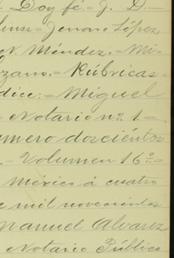 Doy fé.- J. D.-
Jenaro López
N. Méndez.- Mi-
Rúbricas.-
dice:- Miguel
- Notario nº 1-
número doscientos
.- Volumen 16º-
México á cuatro
de mil novecientos
Manuel Alvarez
Notario Público